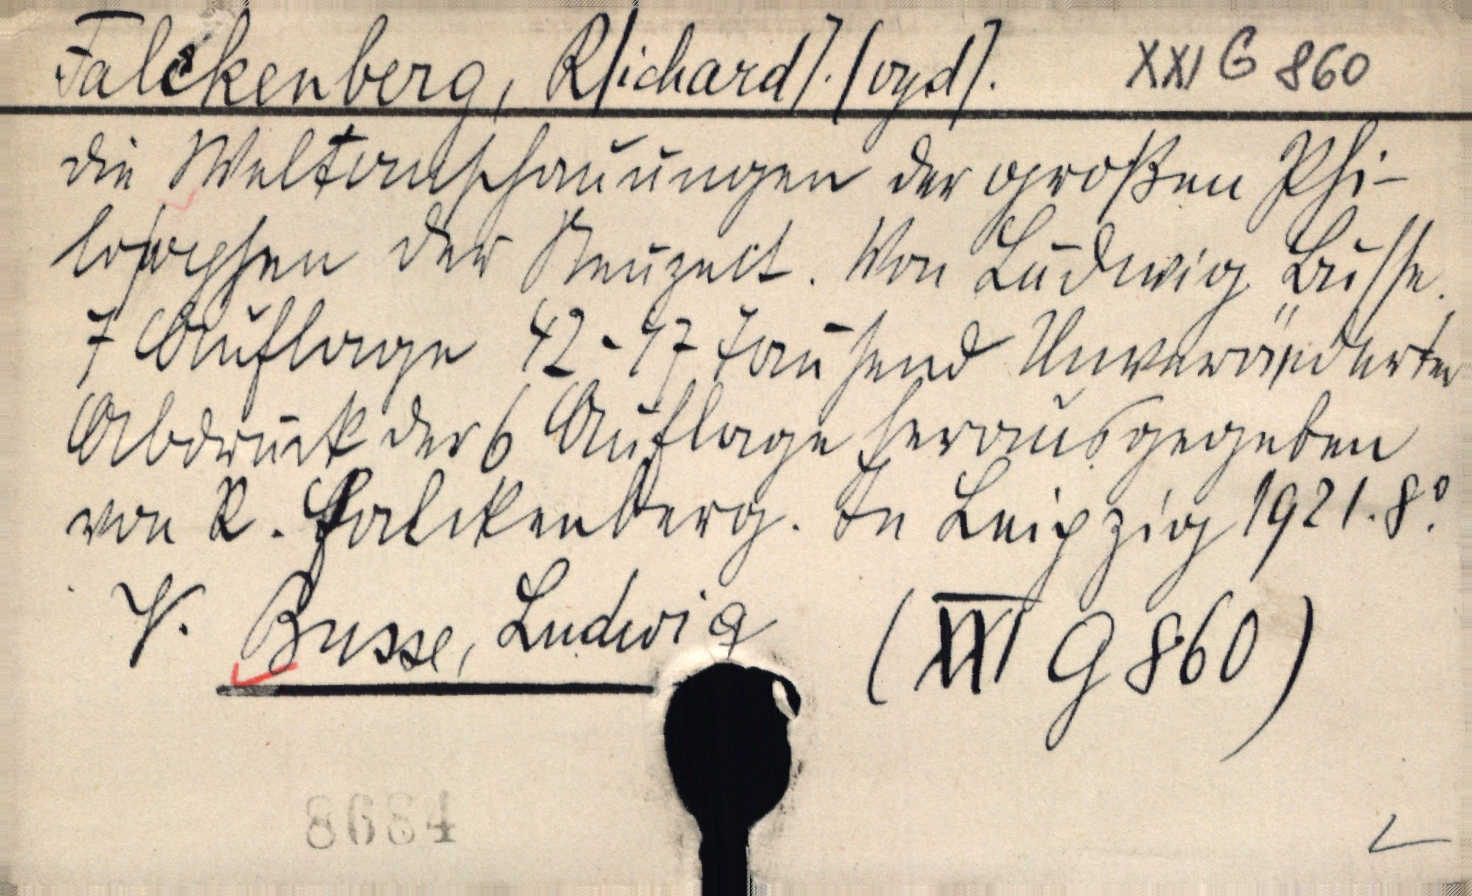 Falckenberg, R[ichard]. [ogd]. XXI G 860
die Weltanschauungen der großen Phi-
losophen der Neuzeit. Von Ludwig Busse.
7 Auflage 42-47 Tausend Unveränderter
Abdruck der 6 Auflage herausgegeben
von R. Falckenberg. In Leipzig 1921. 8°.
V. Busse, Ludwig (XXI G 860)
8684